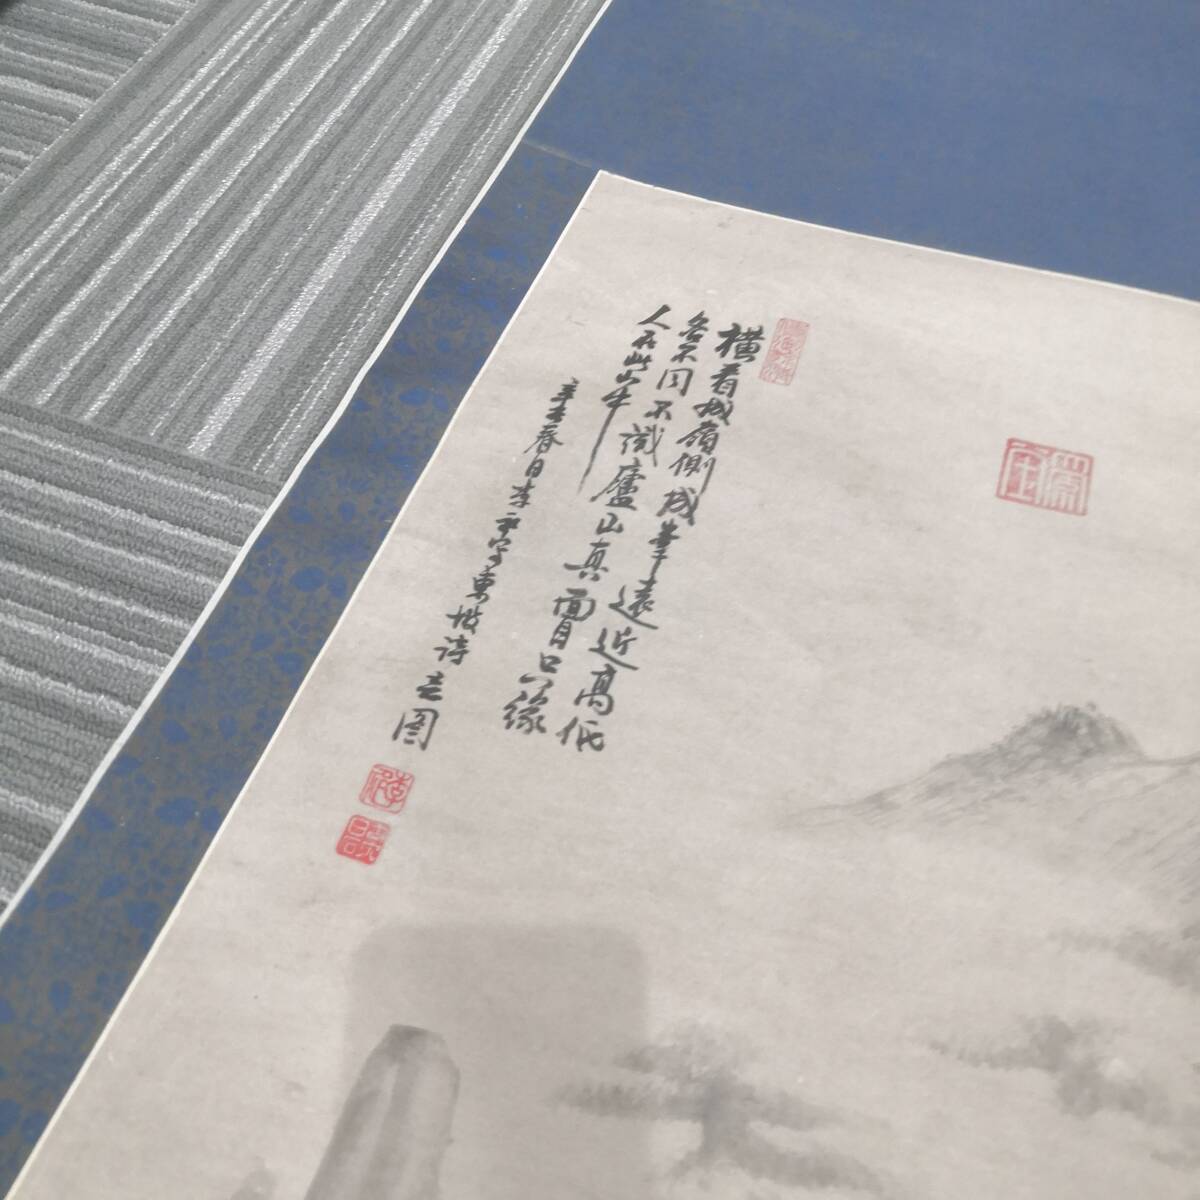 横看成嶺側成峯遠近高低
各不同不識廬山真面目只緣
人在此山中
辛亥春日李 寫東坡詩意圖